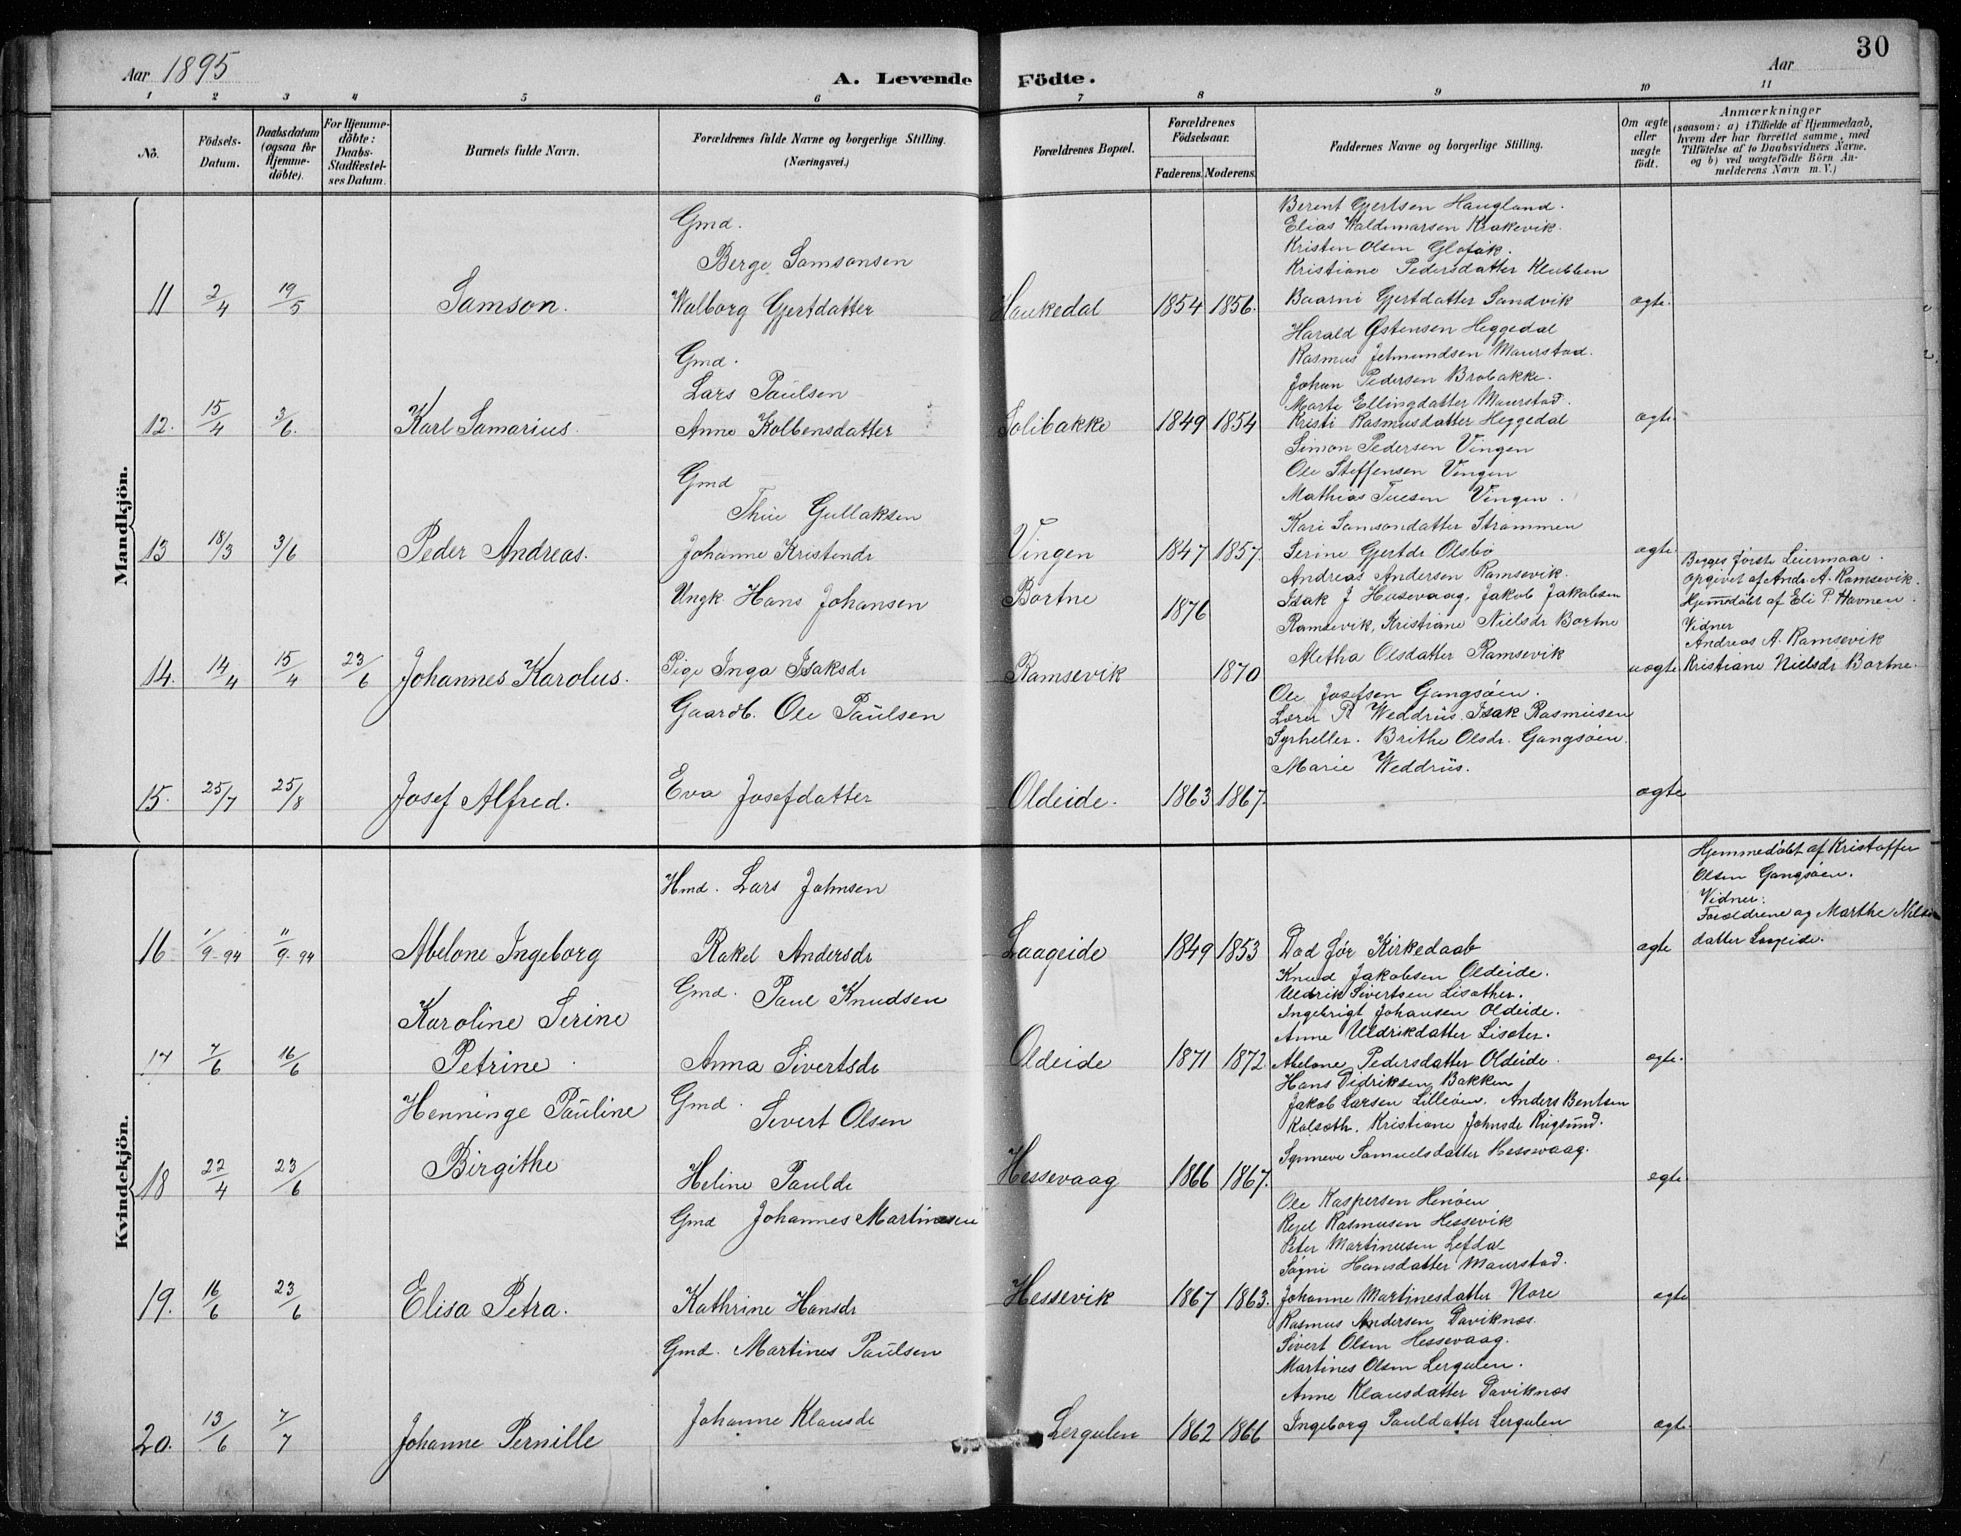 Aar 1895
A. Levende Födte.
Aar
30
1 2 3 4 5 6 7 8 9 10 11
No.
Födsels-
Datum.
Daabsdatum
(ogsaa for
Hjemme-
döbte).
For Hjemme-
döbte:
Daabs-
Stadfæstel-
ses Datum.
Barnets fulde Navn.
Forældrenes fulde Navne og borgerlige Stilling.
(Næringsvei.)
Forældrenes Bopæl.
Forældrenes
Födselsaar.
Faderens. Moderens.
Faddernes Navne og borgerlige Stilling.
Om ægte
eller
uægte
födt.
Anmærkninger
(saasom: a) i Tilfælde af Hjemmedaab,
hvem der har forrettet samme, med
Tilföielse af to Daabsvidners Navne.
og b) ved uægtefödte Börn An-
melderens Navn m. V.)
Mandkjön.
11 2/4 19/5 Samson.
Gmd.
Berge Samsonsen
Walborg Gjertdatter
Haukedal 1854 1856.
Berent Gjertsen Haugland.
Elias Waldemarsen Krakevik.
Kristen Olsen Glofak.
Kristiane Pedersdatter Klubben
Baarni Gjertdatter Sandvik
ægte.
12. 15/4 3/6. Karl Samarius.
Gmd.
Lars Paulsen
Anne Kolbensdatter
Solibakke 1849 1854
Harald Østensen Heggedal
Rasmus Jetmundsen Maurstad.
Johan Pedersen Brobakke.
Marte Ellingdatter Maurstad.
Kristi Rasmusdatter Heggedal
ægte
13 18/3 3/6 Peder Andreas.
Gmd
Thue Gullaksen
Johanne Kristendr
Vingen 1847 1857.
Simon Pedersen Vingen
Ole Steffensen Vingen
Mathias Tuesen Vingen.
Kari Samsondatter Strømmen
Serine Gjertdr Olsbø
ægte.
14. 14/4 15/4 23/6 Johannes Karolus.
Ungk. Hans Johansen
Pige Inga Isaksdr
Bortne 1876
Ramsevik 1870
Andreas Andersen Ramsevik.
Isak J Husevaag, Jakob Jakobsen
Ramsevik, Kristiane Nielsdr Bortne
Aletha Olsdatter Ramsevik
uægte
Begges første Leiermaal.
Opgivet af Ands A. Ramsevik.
Hjemdøbt af Eli P. Havnen.
Vidner
Andreas A. Ramsevik
Kristiane Nielsdr Bortne.
15. 25/7 25/8 Josef Alfred.
Gaardb. Ole Paulsen
Eva Josefdatter
Oldeide. 1863 1867.
Ole Josefsen Gangsøen.
Lærer R Weddriis. Isak Rasmusen
Syrheller. Brithe Olsdr. Gangsøen.
Marie Weddriis.
ægte
Kvindekjön.
16 1/9-94 11/9-94 Abelone Ingeborg
Hmd. Lars Johnsen
Rakel Andersdr
Laageide 1849 1853
Død før Kirkedaab
ægte
Hjemmedøbt af Kristoffer
Olsen Gangsøen.
Vidner:
Forældrene og Marthe Nils-
datter Laageide.
17 7/6 16/6 Karoline Serine
Petrine
Gmd. Paul Knudsen
Anna Sivertsdr
Oldeide 1871 1872.
Knud Jakobsen Oldeide.
Uldrik Sivertsen Lisæther.
Ingebrigt Johansen Oldeide.
Anne Uldrikdatter Lisæter.
Abelone Pedersdatter Oldeide.
ægte.
18 22/4 23/6 Henninge Pauline
Birgithe
Gmd.
Sivert Olsen
Heline Pauldr
Hessevaag 1866 1867.
Hans Didriksen Bakken
Jakob Larsen Lilleøen. Anders Bentsen
Kolsæth. Kristiane Johnsdr Rugsund.
Synneve Samuelsdatter Hessevaag.
egte
19. 16/6 23/6 Elisa Petra.
Gmd Johannes Martinesen
Kathrine Hansdr
Hessevik 1867 1863.
Ole Kaspersen Henøen
Rasmusen Hessevik
Peter Martinusen Lefdal
Søgni Hansdatter Maurstad.
Johanne Martinesdatter Nore
ægte
20. 13/6 7/7 Johanne Pernille
Gmd. Martines Paulsen
Johanne Klausdr
Lergulen 1862 1866
Rasmus Andersen Daviknæs.
Sivert Olsen Hessevaag.
Martines Olsen Lergulen.
Anne Klausdatter Daviknæs
Ingeborg Pauldatter Lergulen
ægte.